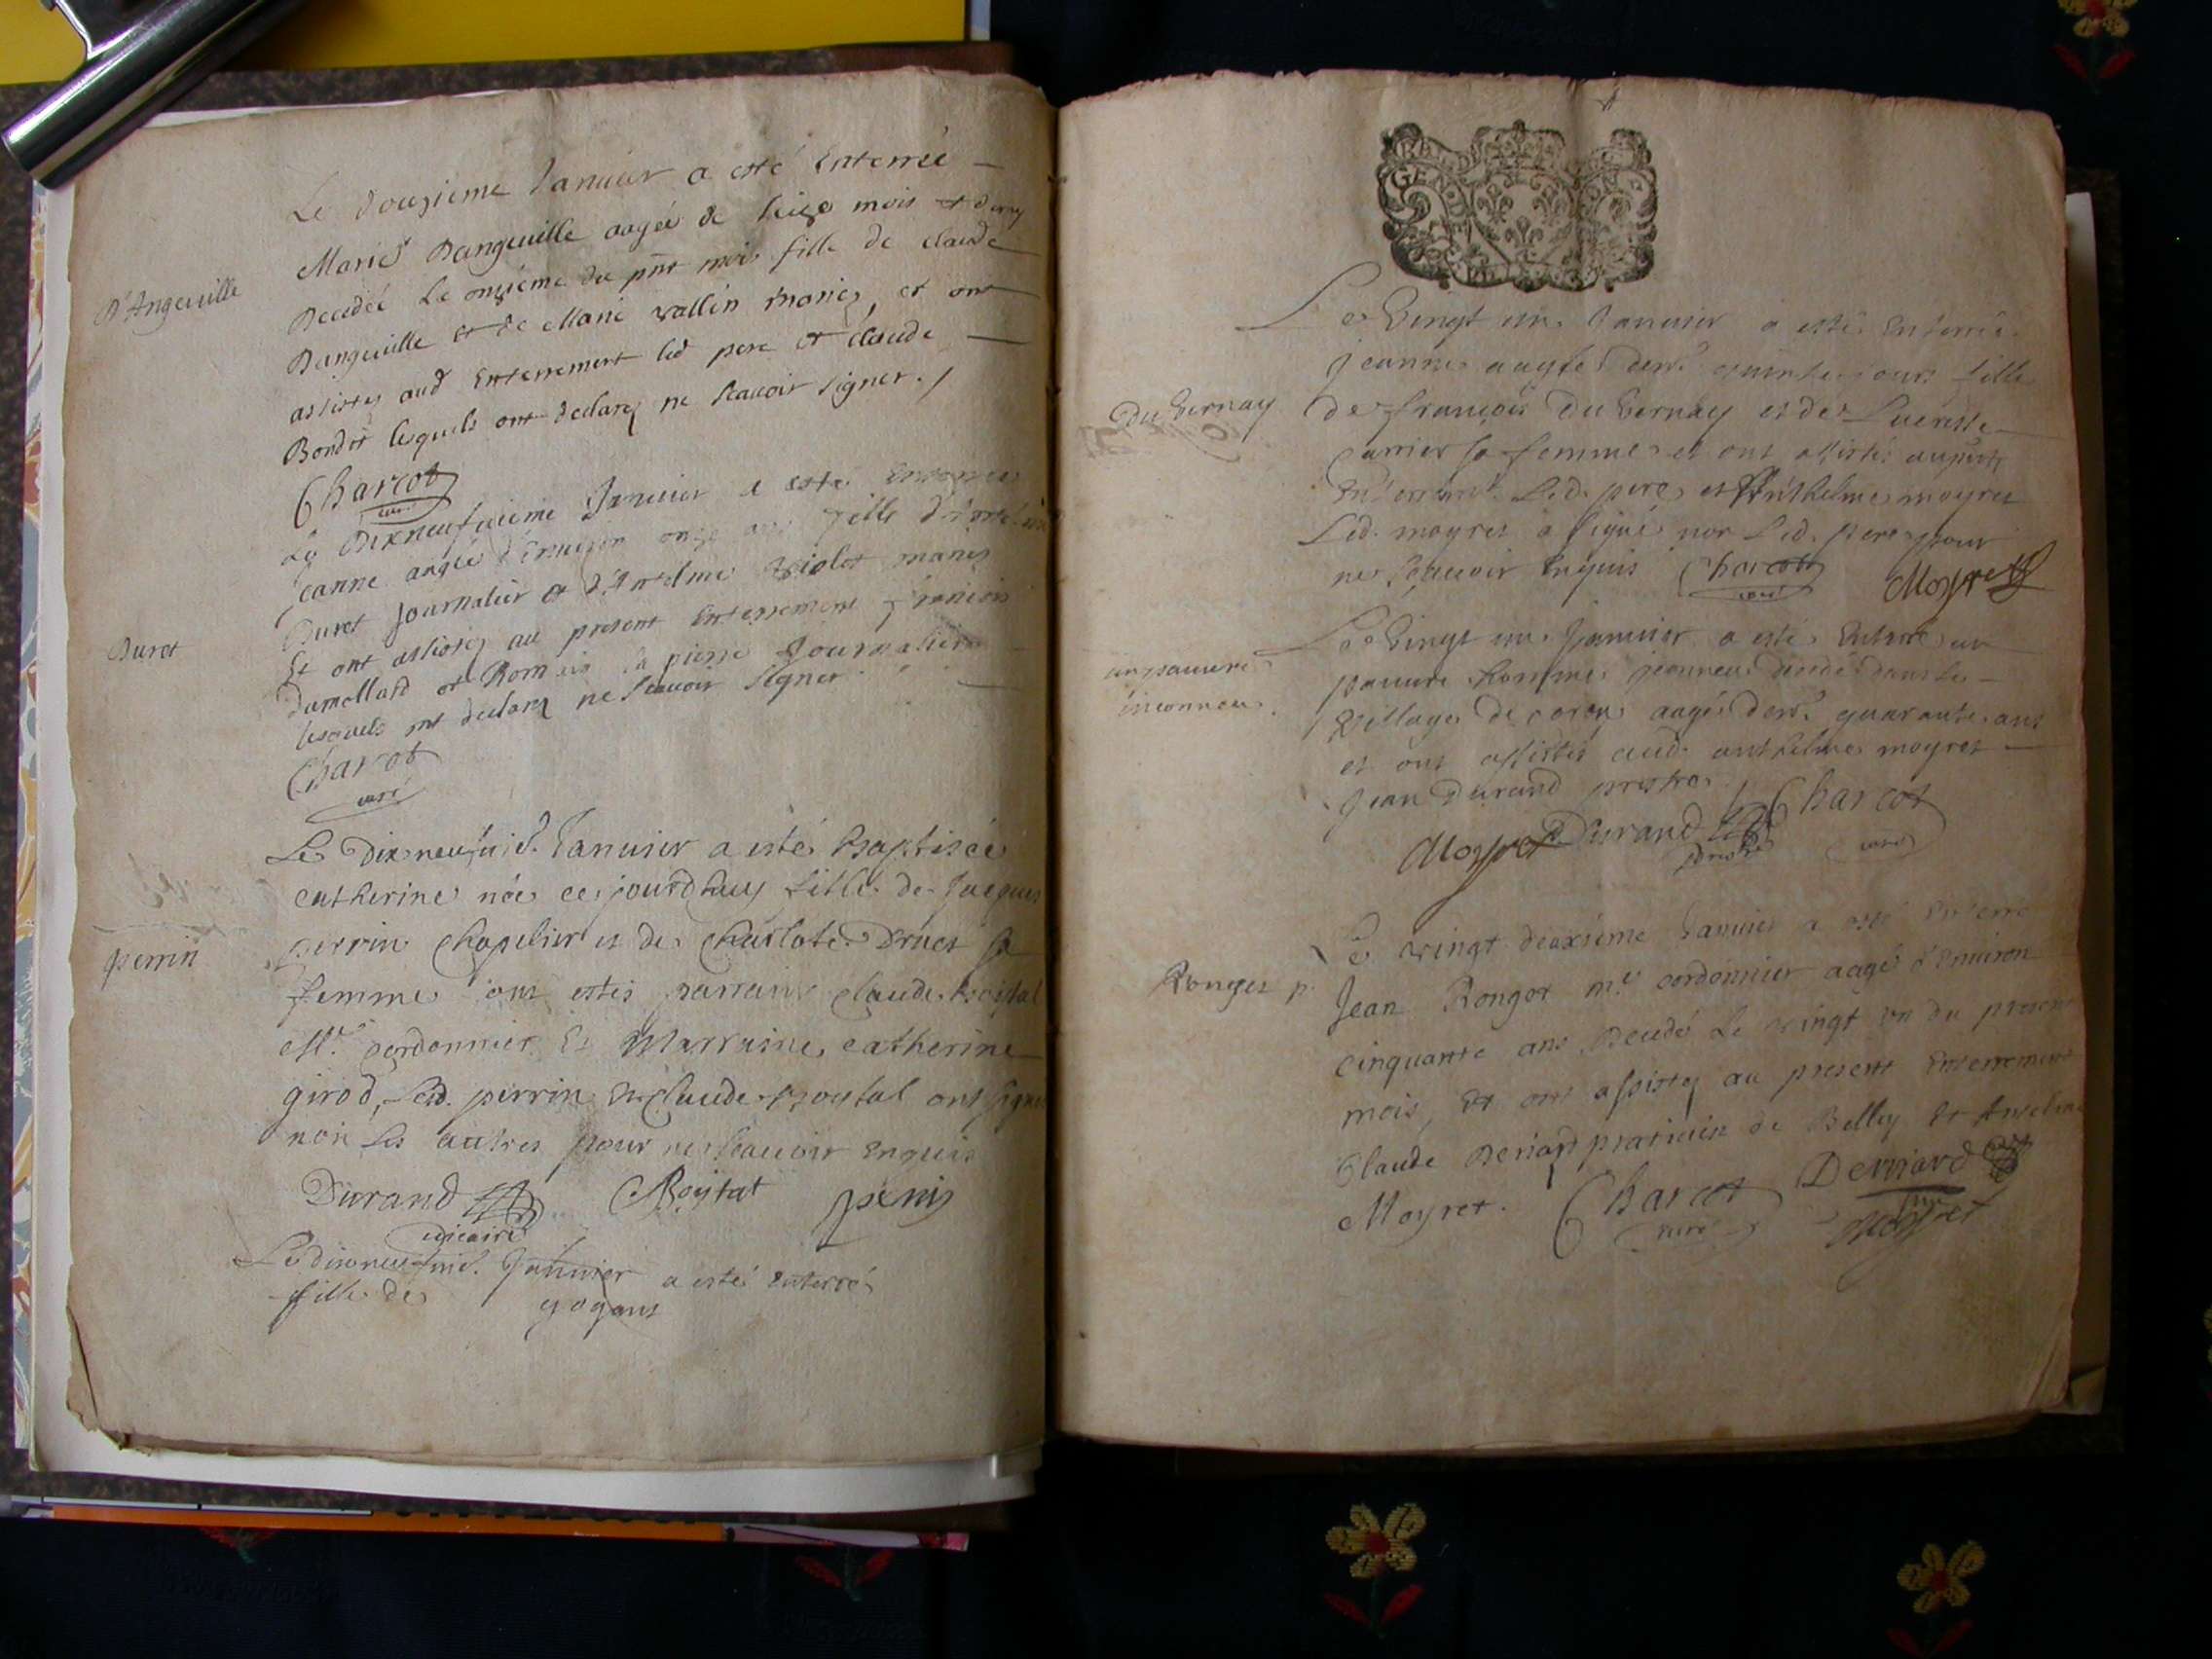 Le douzieme Januier a esté Enterreé
Marie Dangeuille aagée de seize mois et demy
D'Angeuille
Decedéé Le onzieme du pnt mois fille de claude
Dangeuille et de Marie vallin mariez, et ont
assistez aud Enterrement led pere et claude
Bondet lesquels ont declarez ne scauoir signer.
Charcot
curé
Le Dixneufuieme Januier a esté Enterrée
Jeanne aagée d'Enuiron onze ans fille d'
Duret
Duret Journalier et d'Antelme violet mariez
Et ont assistez au present Enterrement françois
Dumollard et Romain la pierre Journaliers
lesquels ont declarez ne scauoir signer.
Charcot
curé
Le Dixneufuie. Januier a esté Baptiseé
catherine née ce jourdhuy fille de Jacques
perrin
perrin chapelier et de charlote Druet sa
femme ont estés parrain claude
Mre. cordonnier Et Marraine catherine
girod, Led. perrin Et claude ont signé
non les autres pour ne scauoir Enquis
Durand Boytat perrin
vicaire
Le dixneufuie. Januier a esté enterré
fille de
GEN DE
Le Vingt un Januier a esté Enterreé
jeanne aagée denv. quinze jours fille
Du Vernay
de françois Du Vernay et de
Carrier sa femme et ont assisté au pnt
Enterremt. Led. pere et Anthelme moyret
Led. moyret a signé non Led. pere pour
ne sçauoir Enquis Charcot Moyret
curé
Le Vingt un Januier a esté Enterré un
un pauure
inconneu.
pauure homme jnconneu décédé dans le
village de coron aagé denv. quarante ans
et ont assistés aud. anthelme moyret
Jean Durand prestre
Moyret Durand Charcot
prestre curé
Le vingt deuxiéme Januier a esté Enterré
Ronget p.
Jean Ronget me. cordonnier aagé d'Enuiron
cinquante ans Decedé Le vingt un du present
mois, Et ont assistez au present Enterrement
Claude Deriard praticien de Belley Et Antelme
Moyret. Charcot Derriard
curé Moyret